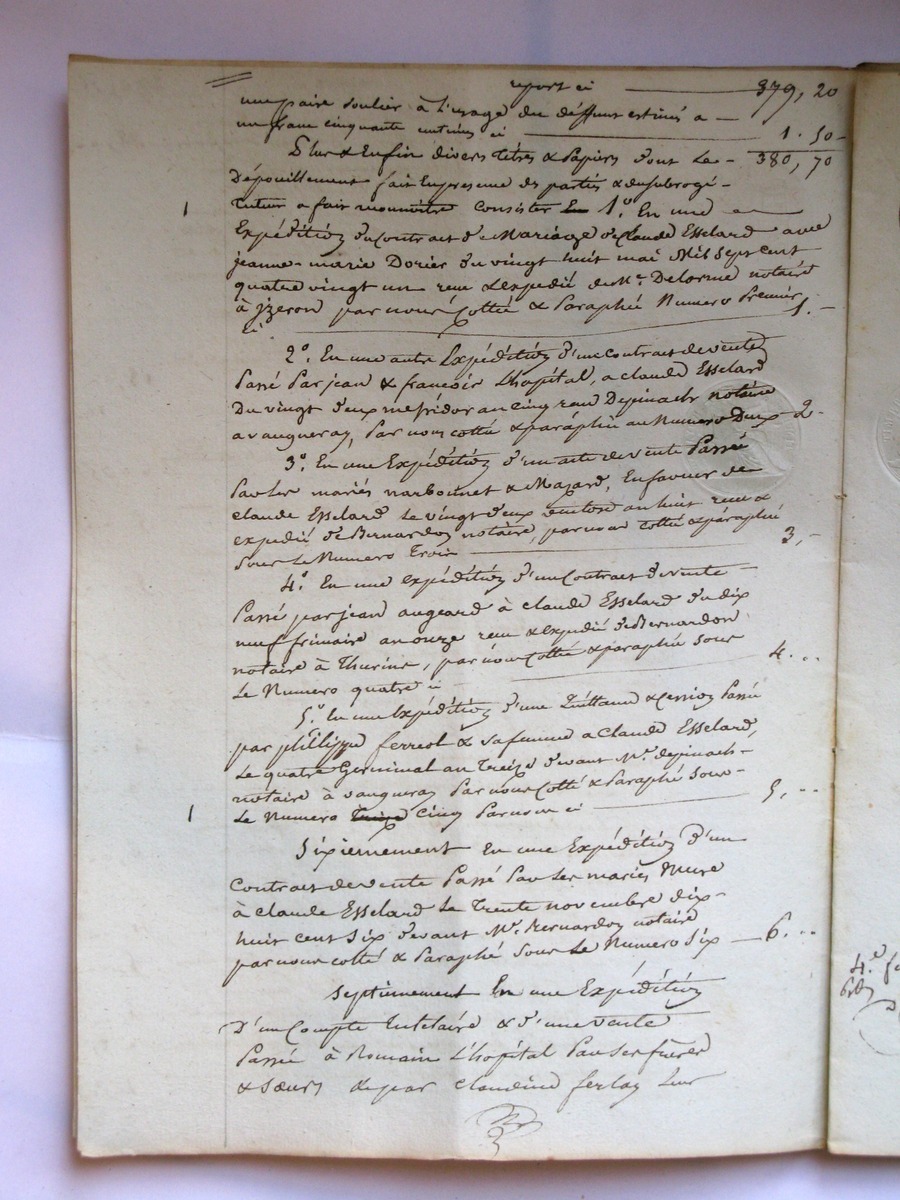 report ci 379, 20
une paire soulier à l'usage du deffunt estimés a
un franc cinquante centimes ci 1. 50
Plus & Enfin divers Titres & Papiers dont le 380, 70
Dépouillement fait En presence des parties & du subrogé
Tuteur a fait reconnoitre consister 1º. En une
Expédition du Contrat de Mariage de Claude Esselard avec
jeanne-marie Dorier du vingt huit mai Mil Sept Cent
quatre vingt un reçu & expedié de Me. Delorme notaire
à jzeron par nous Cotté & Paraphé Numero Premier
ci 1.
2º. En une autre Expédition d'un Contrat de vente
Passé Par jean & françois Lhopital, a claude Esselard
Du vingt deux messidor an cinq reçu Depinach notaire
a vaugneray, Par nous cotté & paraphé au Numero Deux 2
3º. En une Expédition d'un acte de vente Passée
Par les mariés narbonnet & Mazard, En faveur de
claude Esselard Le vingt deux ventose an huit reçu &
expedié de Bernardon notaire, par nous Cotté & paraphé
Sous Le Numero Trois 3,
4º. En une expédition d'un Contrat de vente
Passé par jean augeard à claude Esselard du dix
neuf frimaire an onze reçu & expedié de Bernardon
notaire à Thurins, par nous Cotté & paraphé sous
Le Numero quatre ci 4..
5º. En une Expédition d'une Quittance & cession Passé
par phillippe ferreol & sa femme a Claude Esselard,
Le quatre Germinal an Treize devant Me. depinach
notaire à vaugneray Par nous Cotté & Paraphé Sous
Le Numero Cinq Par nous ci 5,..
Sixiemement En une Expédition d'un
Contrat de vente Passé Par les mariés Mure
à Claude Esselard Le Trente novembre dix
huit cent Six devant Me. Bernardon notaire
par nous cotté & Paraphé Sous Le Numero Six 6..
Septiemement En une Expédition
D'un Compte tutelaire & d'une vente
Passée à Romain L'hopital Par ses freres
& sœurs & par Claudine ferlay leur
4.e